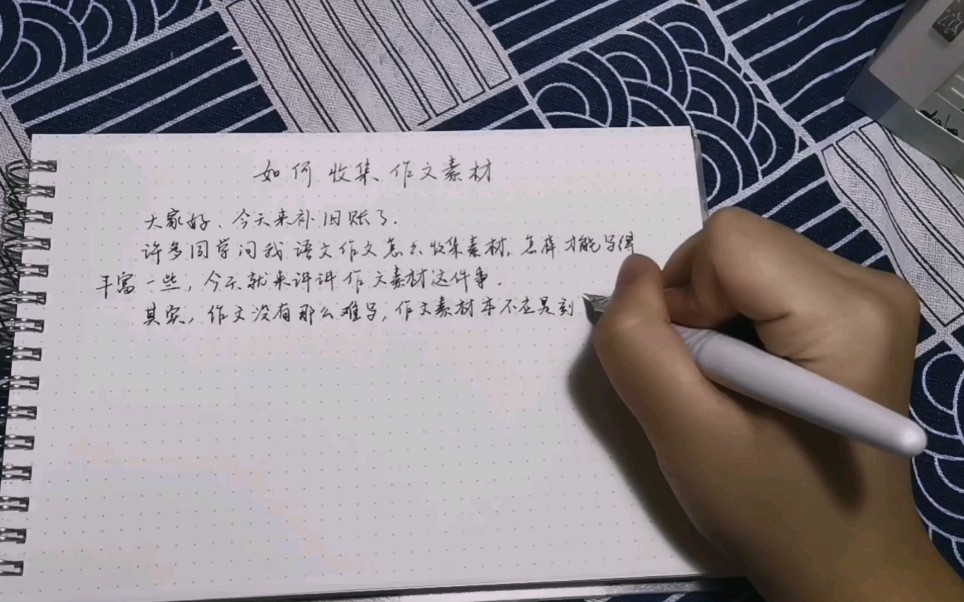 如何收集作文素材
大家好、今天来补旧账了.
许多同学问我语文作文怎么收集素材,怎样才能写得
丰富一些,今天就来讲讲作文素材这件事.
其实,作文没有那么难写,作文素材本不应是到